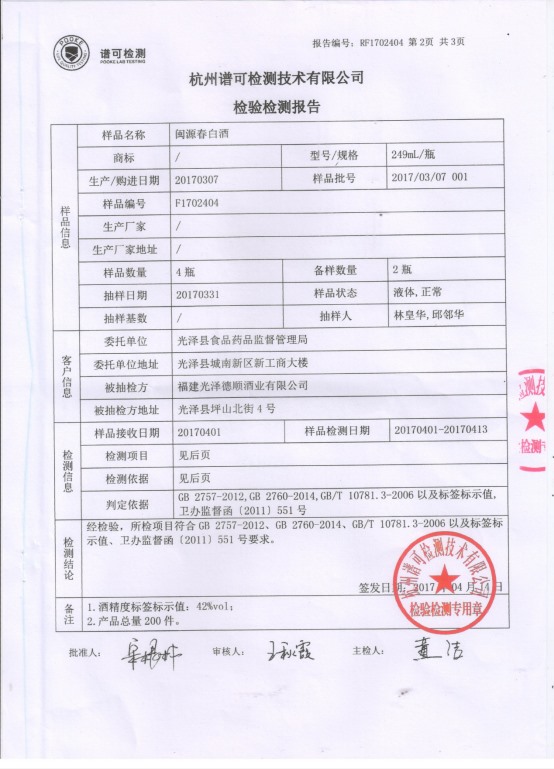 POOKE
谱可检测
POOKE LAB TESTING
报告编号：RF1702404 第2页 共3页
杭州谱可检测技术有限公司
检验检测报告
样品信息
样品名称 闽源春白酒
商标 / 型号/规格 249mL/瓶
生产/购进日期 20170307 样品批号 2017/03/07 001
样品编号 F1702404
生产厂家 /
生产厂家地址 /
样品数量 4瓶 备样数量 2瓶
抽样日期 20170331 样品状态 液体,正常
抽样基数 / 抽样人 林皇华,邱邻华
客户信息
委托单位 光泽县食品药品监督管理局
委托单位地址 光泽县城南新区新工商大楼
被抽检方 福建光泽德顺酒业有限公司
被抽检方地址 光泽县坪山北街4号
检测信息
样品接收日期 20170401 样品检测日期 20170401-20170413
检测项目 见后页
检测依据 见后页
判定依据 GB 2757-2012,GB 2760-2014,GB/T 10781.3-2006以及标签标示值,
卫办监督函〔2011〕551号
检测结论
经检验，所检项目符合GB 2757-2012、GB 2760-2014、GB/T 10781.3-2006以及标签标
示值、卫办监督函〔2011〕551号要求。
签发日期：2017年04月14日
杭州谱可检测技术有限公司
检验检测专用章
备注
1.酒精度标签标示值：42%vol；
2.产品总量200件。
批准人： 审核人： 主检人： 董洁